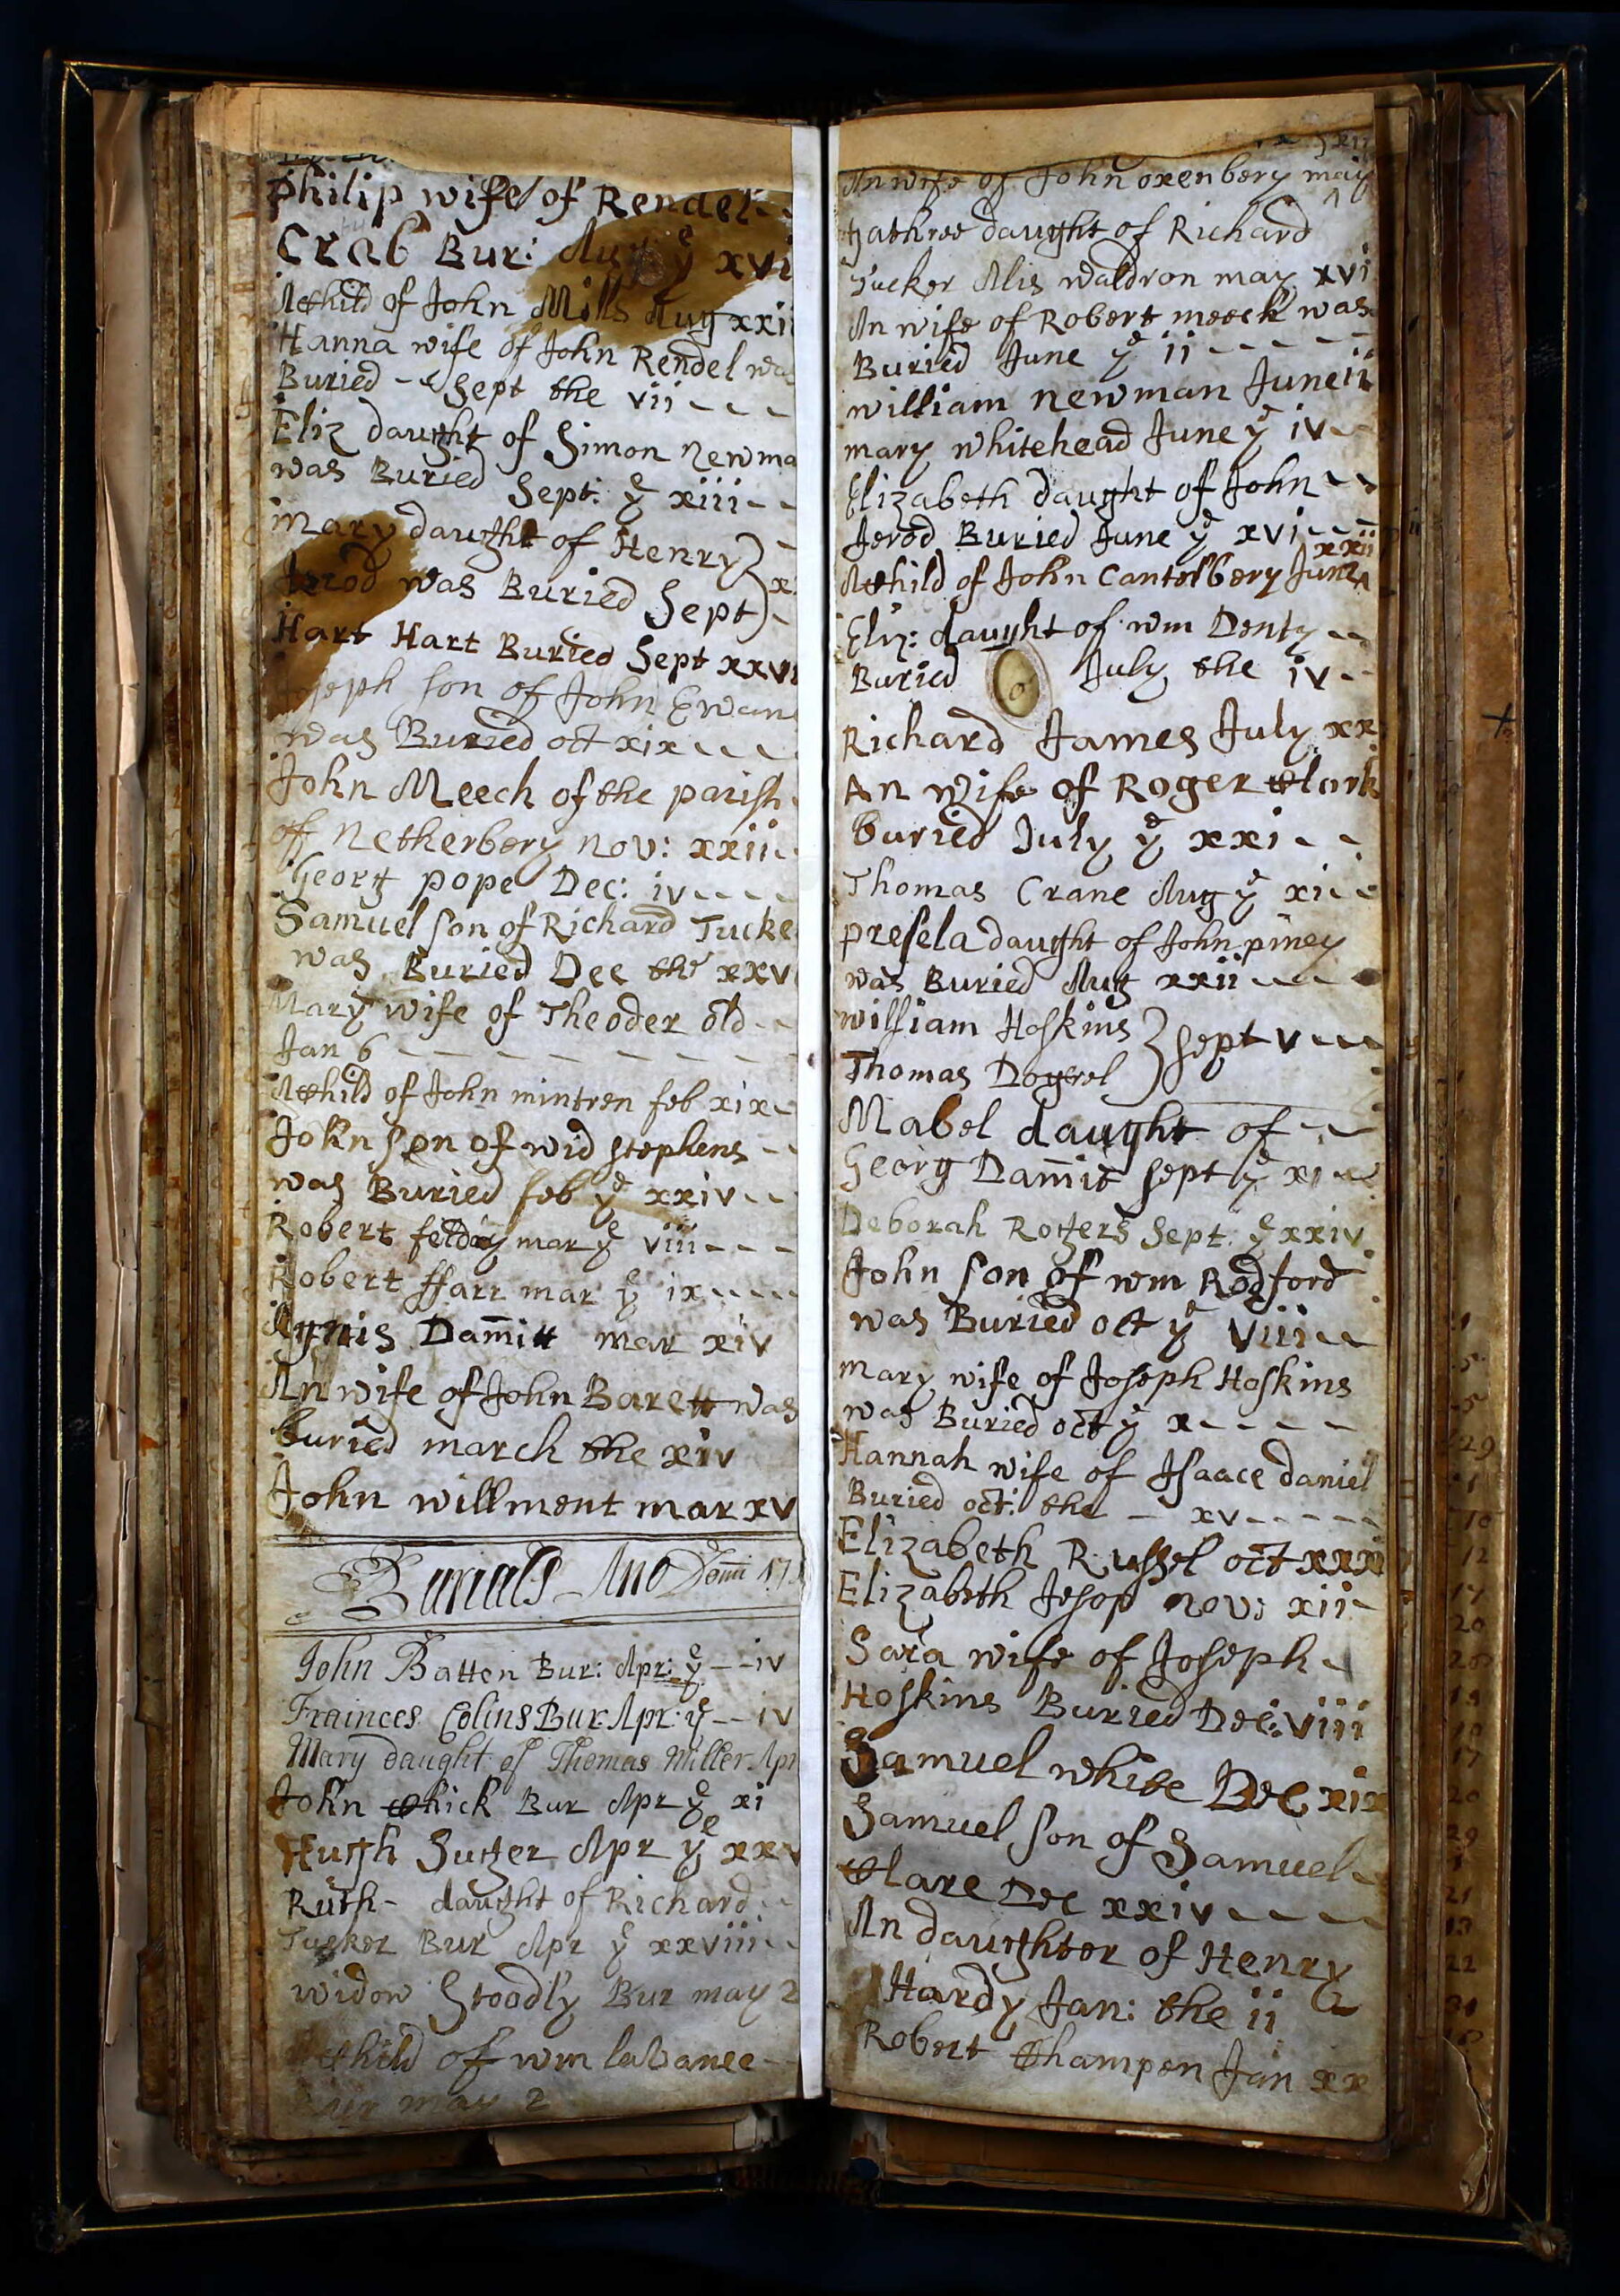 Philip wife of Rendel
Crab Bur: Aug ye xvi
A child of John Mills Aug xxi
Hanna wife of John Rendel wa
Buried - Sept the vii
Eliz daught of Simon Newma
was Buried Sept: ye xiii
Mary daught of Henry
Jerod was Buried Sept x
Hart Hart Buried Sept xxvi
Joseph son of John Ewan
was Buried oct xix
John Meech of the parish
of Netherbery nov: xxii
Georg pope Dec: iv
Samuel son of Richard Tucke
was Buried Dec the xxv
Mary wife of Theoder old
Jan 6
A child of John mintren feb xix
John son of wid stephens
was Buried feb ye xxiv
Robert mar ye viii
Robert ffarr mar ye ix
Agnis Dam̄itt mar xiv
An wife of John Barett was
buried march the xiv
John willment mar xv
Burials Ano Domi 17
John Batten Bur: Apr: ye iv
Frainces Colins Bur: Apr: ye iv
Mary daught of Thomas Miller Apr
John Chick Bur Apr ye xi
Hugh Suger Apr ye xxv
Ruth daught of Richard
Tucker Bur Apr ye xxviii
widow Stoodly Bur may 2
child of wm lavanee
Bur may 2
xii
An wife of John oxenbery may
daught of Richard
Tucker Alis waldron may xvi
An wife of Robert meech was
Buried June ye ii
william newman June ii
mary whitehead June ye iv
Elizabeth daught of John
Jerod Buried June ye xvi
xxii
A child of John Cantelbery June
Eliz: daught of wm Denty
Buried July the iv
Richard James July xx
An wife of Roger Clark
buried July ye xxi
Thomas Crane Aug ye xi
presela daught of John piney
was Buried Aug xxii
william Hoskins
Sept v
Thomas Dogerel
Mabel daught of
Georg Dam̄it sept ye xi
Deborah Rogers Sept. ye xxiv
John son of wm Rodford
was Buried oct ye viii
mary wife of Joseph Hoskins
was Buried oct ye x
Hannah wife of Isaace daniel
Buried oct: the xv
Elizabeth Russel oct xxxi
Elizabeth Jesop nov: xii
Sara wife of Joseph
Hoskins Buried Dec: viii
Samuel white Dec xix
Samuel son of Samuel
Clare Dec xxiv
An daughter of Henry
Hardy Jan: the ii
Robert Champen Jan xx